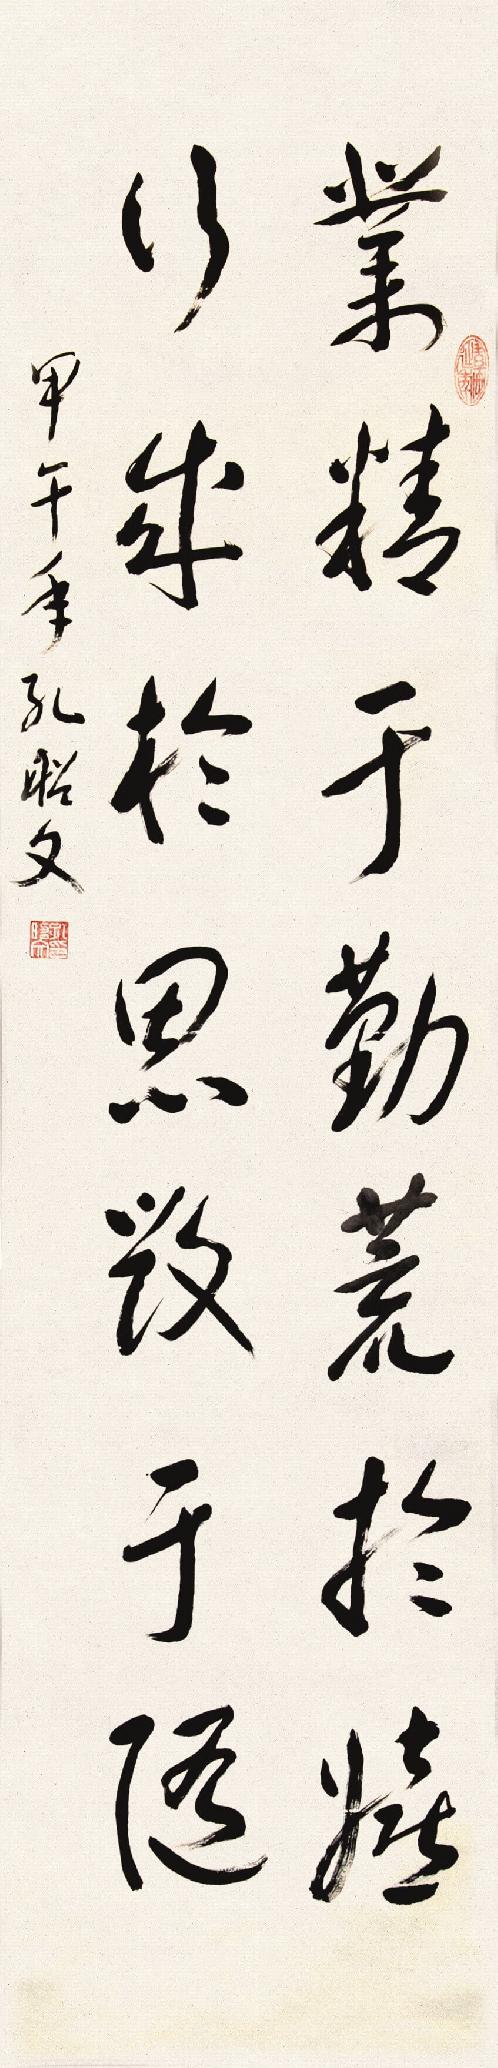 業精于勤荒於嬉
行成於思毀于随
甲午年孔昭文